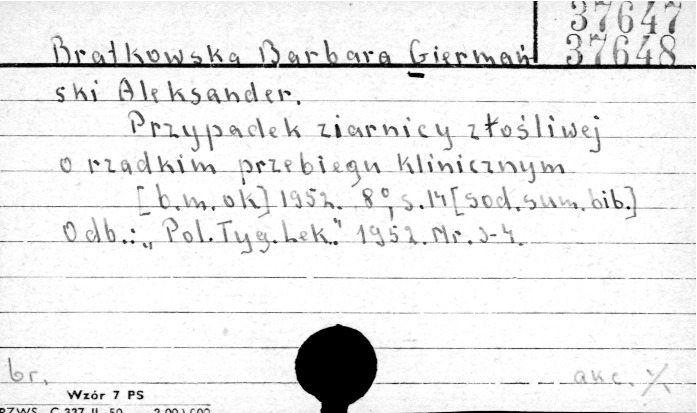 37647
37648
Bratkowska Barbara Giermań
ski Aleksander.
Przypadek ziarnicy złośliwej
o rzadkim przebiegu klinicznym
[b.m. ok] 1952. 8°, s. 14 [sod. sum. bib.]
Odb.: „Pol. Tyg. Lek." 1952. Nr. 3-4.
br.
akc.
Wzór 7 PS
RZWS C 337 II 50